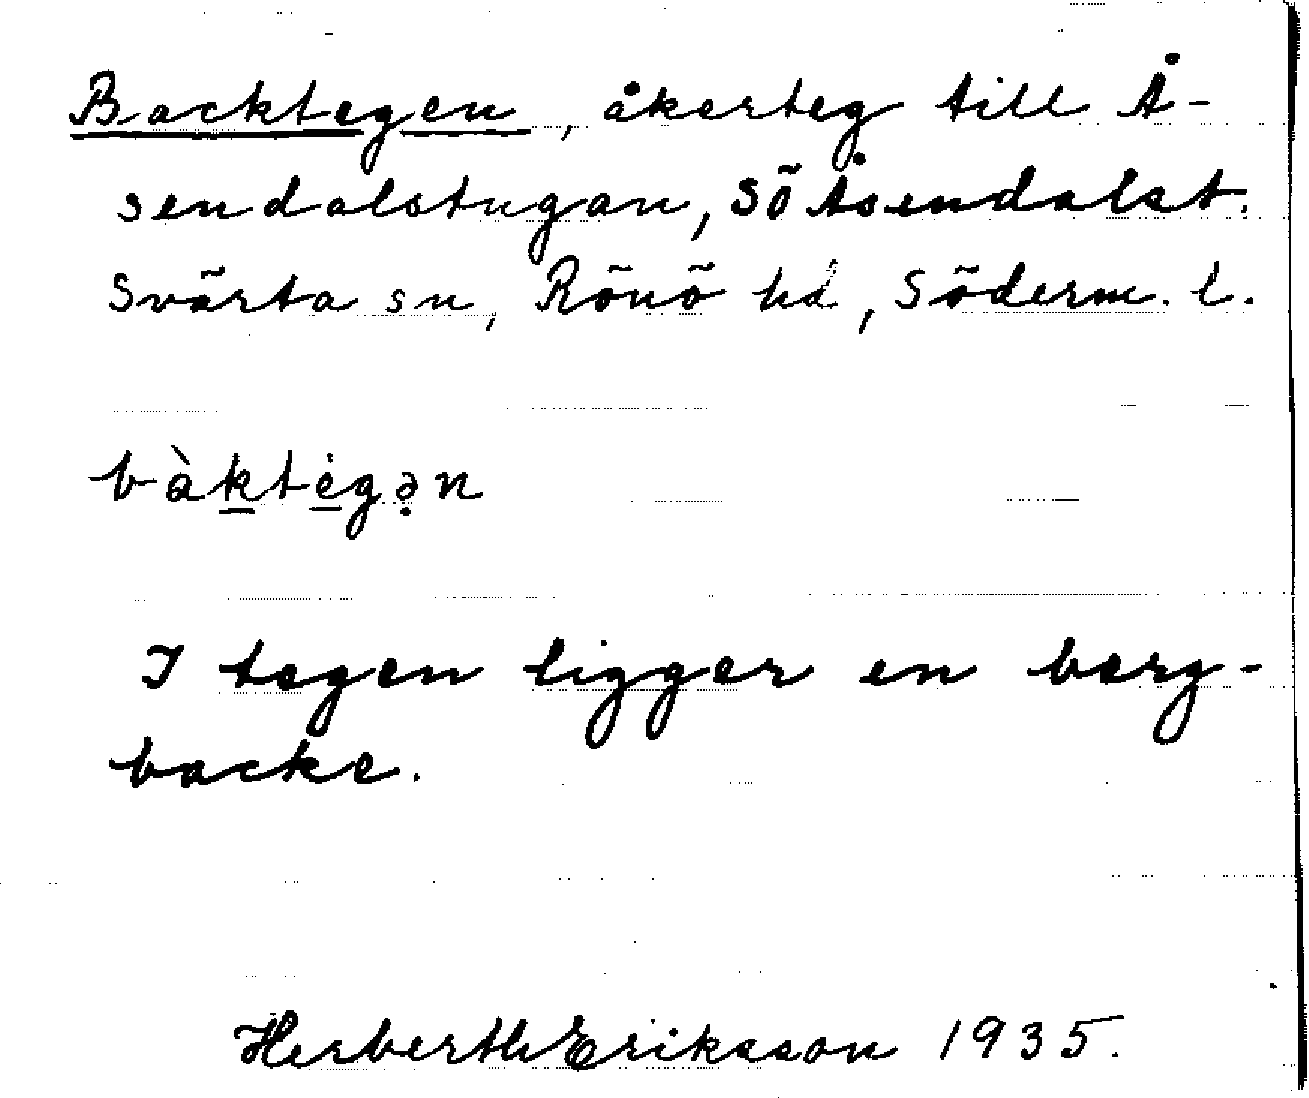 Backtegen, åkerteg till Å-
sendalstugan, SÖ Åsendalst.
Svärta sn, Rönö hd, Söderm. l.
bàktėgən
I tegen ligger en berg-
backe.
Herberth Eriksson 1935.